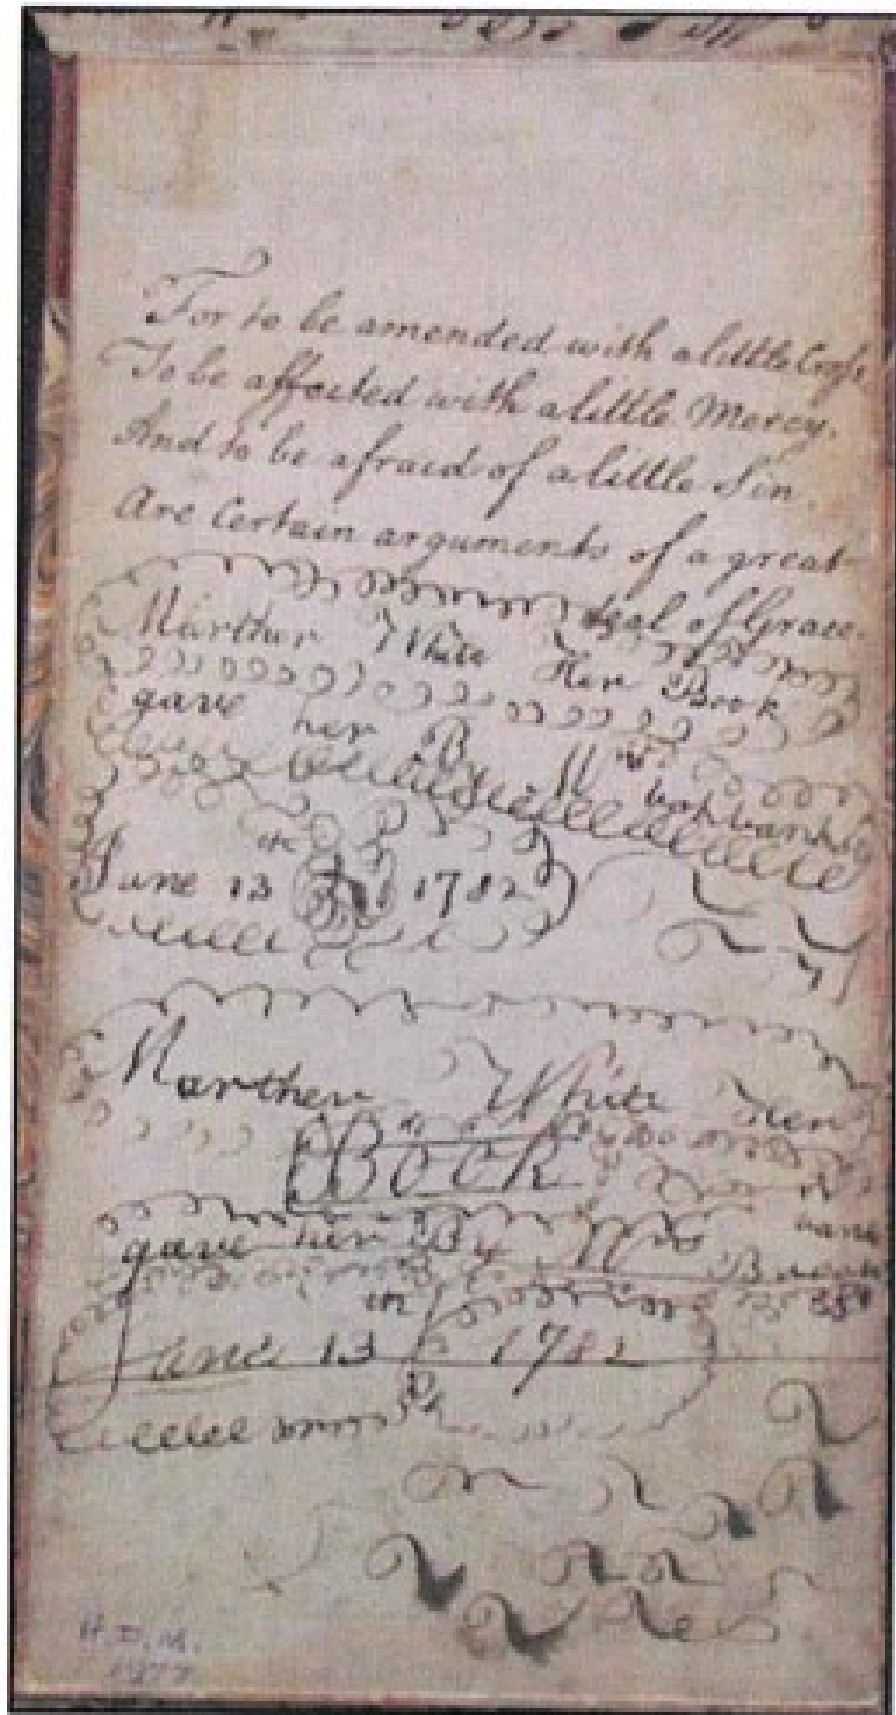 For to be amended with a little Cross
To be affected with a little Mercy.
And to be afraid of a little Sin.
Are Certain arguments of a great
deal of Grace.
Marther White Her Book
gave her B
June 13 th 1782
Marther White Her
Book
gave her By Mrs
June 13 th 1782
H. D. M.